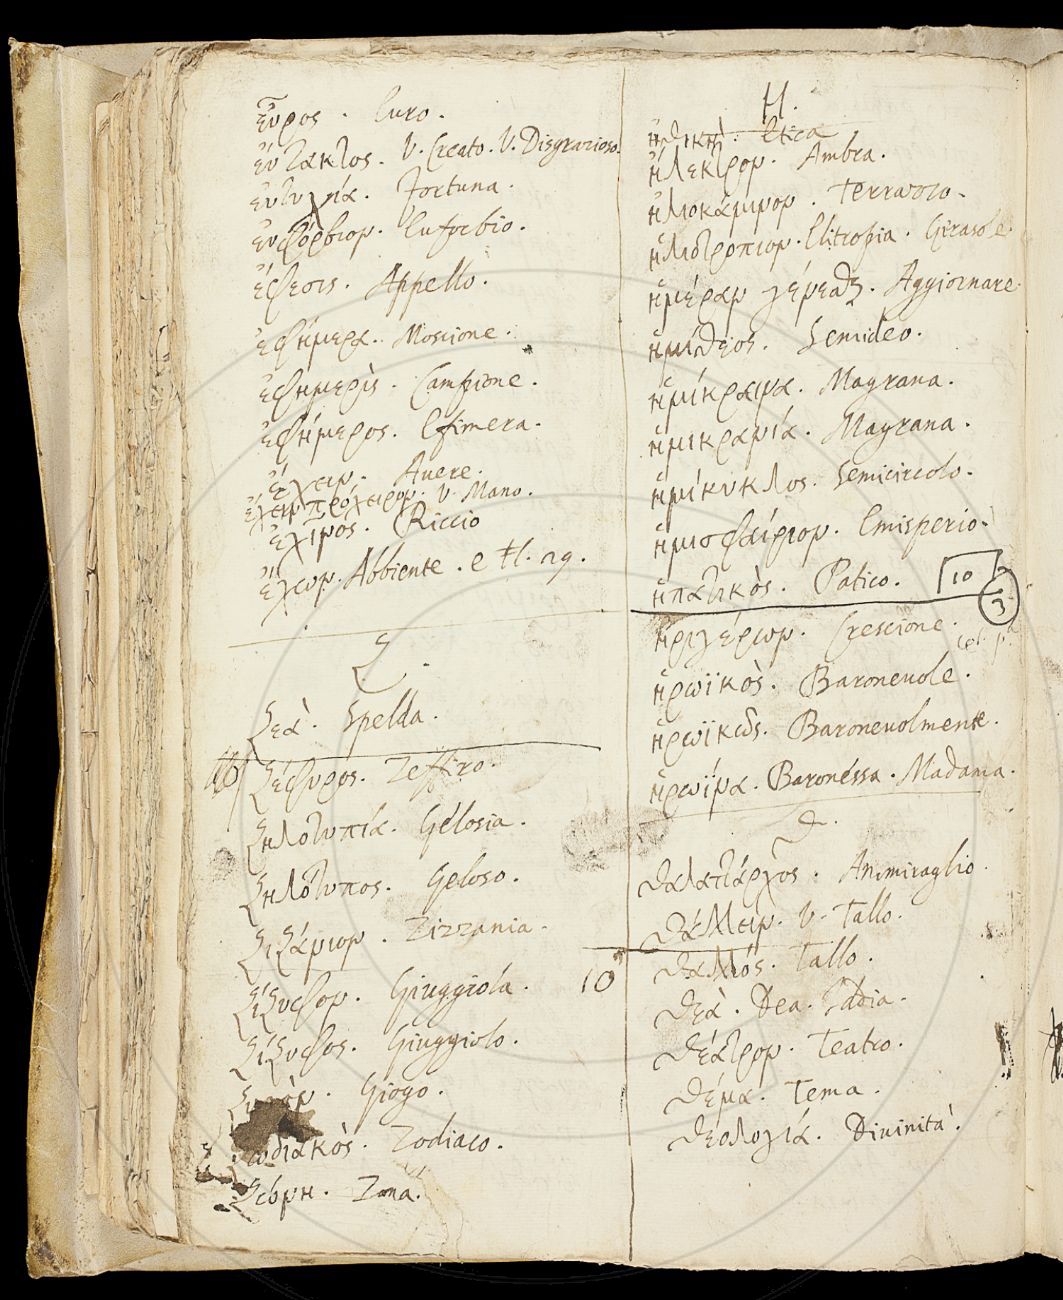 εὖρος. Euro.
εὔτακτος. V. Creato. V. Disgrazioso.
εὐτυχία. Fortuna.
εὐφόρβιον. Euforbio.
ἔφεσις. Appello.
ἐφήμερα. Moscione.
ἐφημερὶς. Campione.
ἐφήμερος. Efimera.
ἔχειν. Avere.
ἔχειν πρόχειρον. V. Mano.
ἐχῖνος. Riccio
ἔχων. Abbiente. e tt. ag.
Ζ.
Ζεὰ. Spelda.
Ζέφυρος. Zeffiro.
Ζηλοτυπία. Gelosia.
Ζηλότυπος. Geloso.
Ζιζάνιον. Zizzania.
Ζίζυφον. Giuggiola.
Ζίζυφος. Giuggiolo.
Giogo.
ζωδιακὸς. Zodiaco.
Ζώνη. Zona.
H.
ἠθική. Etica
ἤλεκτρον. Ambra.
ἡλιοκάμινον. Terrazzo.
ἡλιοτρόπιον. Elitropia. Girasole.
ἡμέραν γένεσθαι. Aggiornare.
ἡμίθεος. Semideo.
ἡμίκραινα. Magrana.
ἡμικρανία. Magrana.
ἡμίκυκλος. Semicircolo.
ἡμισφαίριον. Emisperio.
ἡπατικὸς. Patico. 10
3
ἠριγέρων. Crescione.
ἡρωϊκὸς. Baronevole.
ἡρωϊκῶς. Baronevolmente.
ἡρωΐνα. Baronéssa. Madama.
θ.
θαλατάρχος. Ammiraglio.
θάλλειν. V. Tallo.
10 θαλλός. Tallo.
θεὰ. Dea. Iddia.
θέατρον. Teatro.
θέμα. Tema.
θεολογία. Divinità.